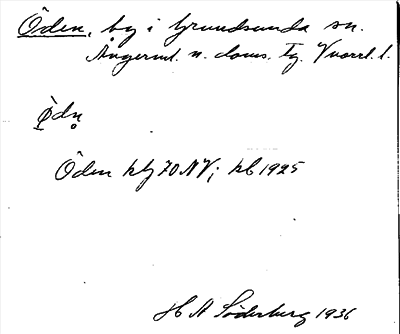 Öden, by i Grundsunda sn.
Ångerml. n. doms. tg. Vnorrl. l.
Ödn̥
Öden hbl 70 NV; hb 1925
H A Söderberg 1936